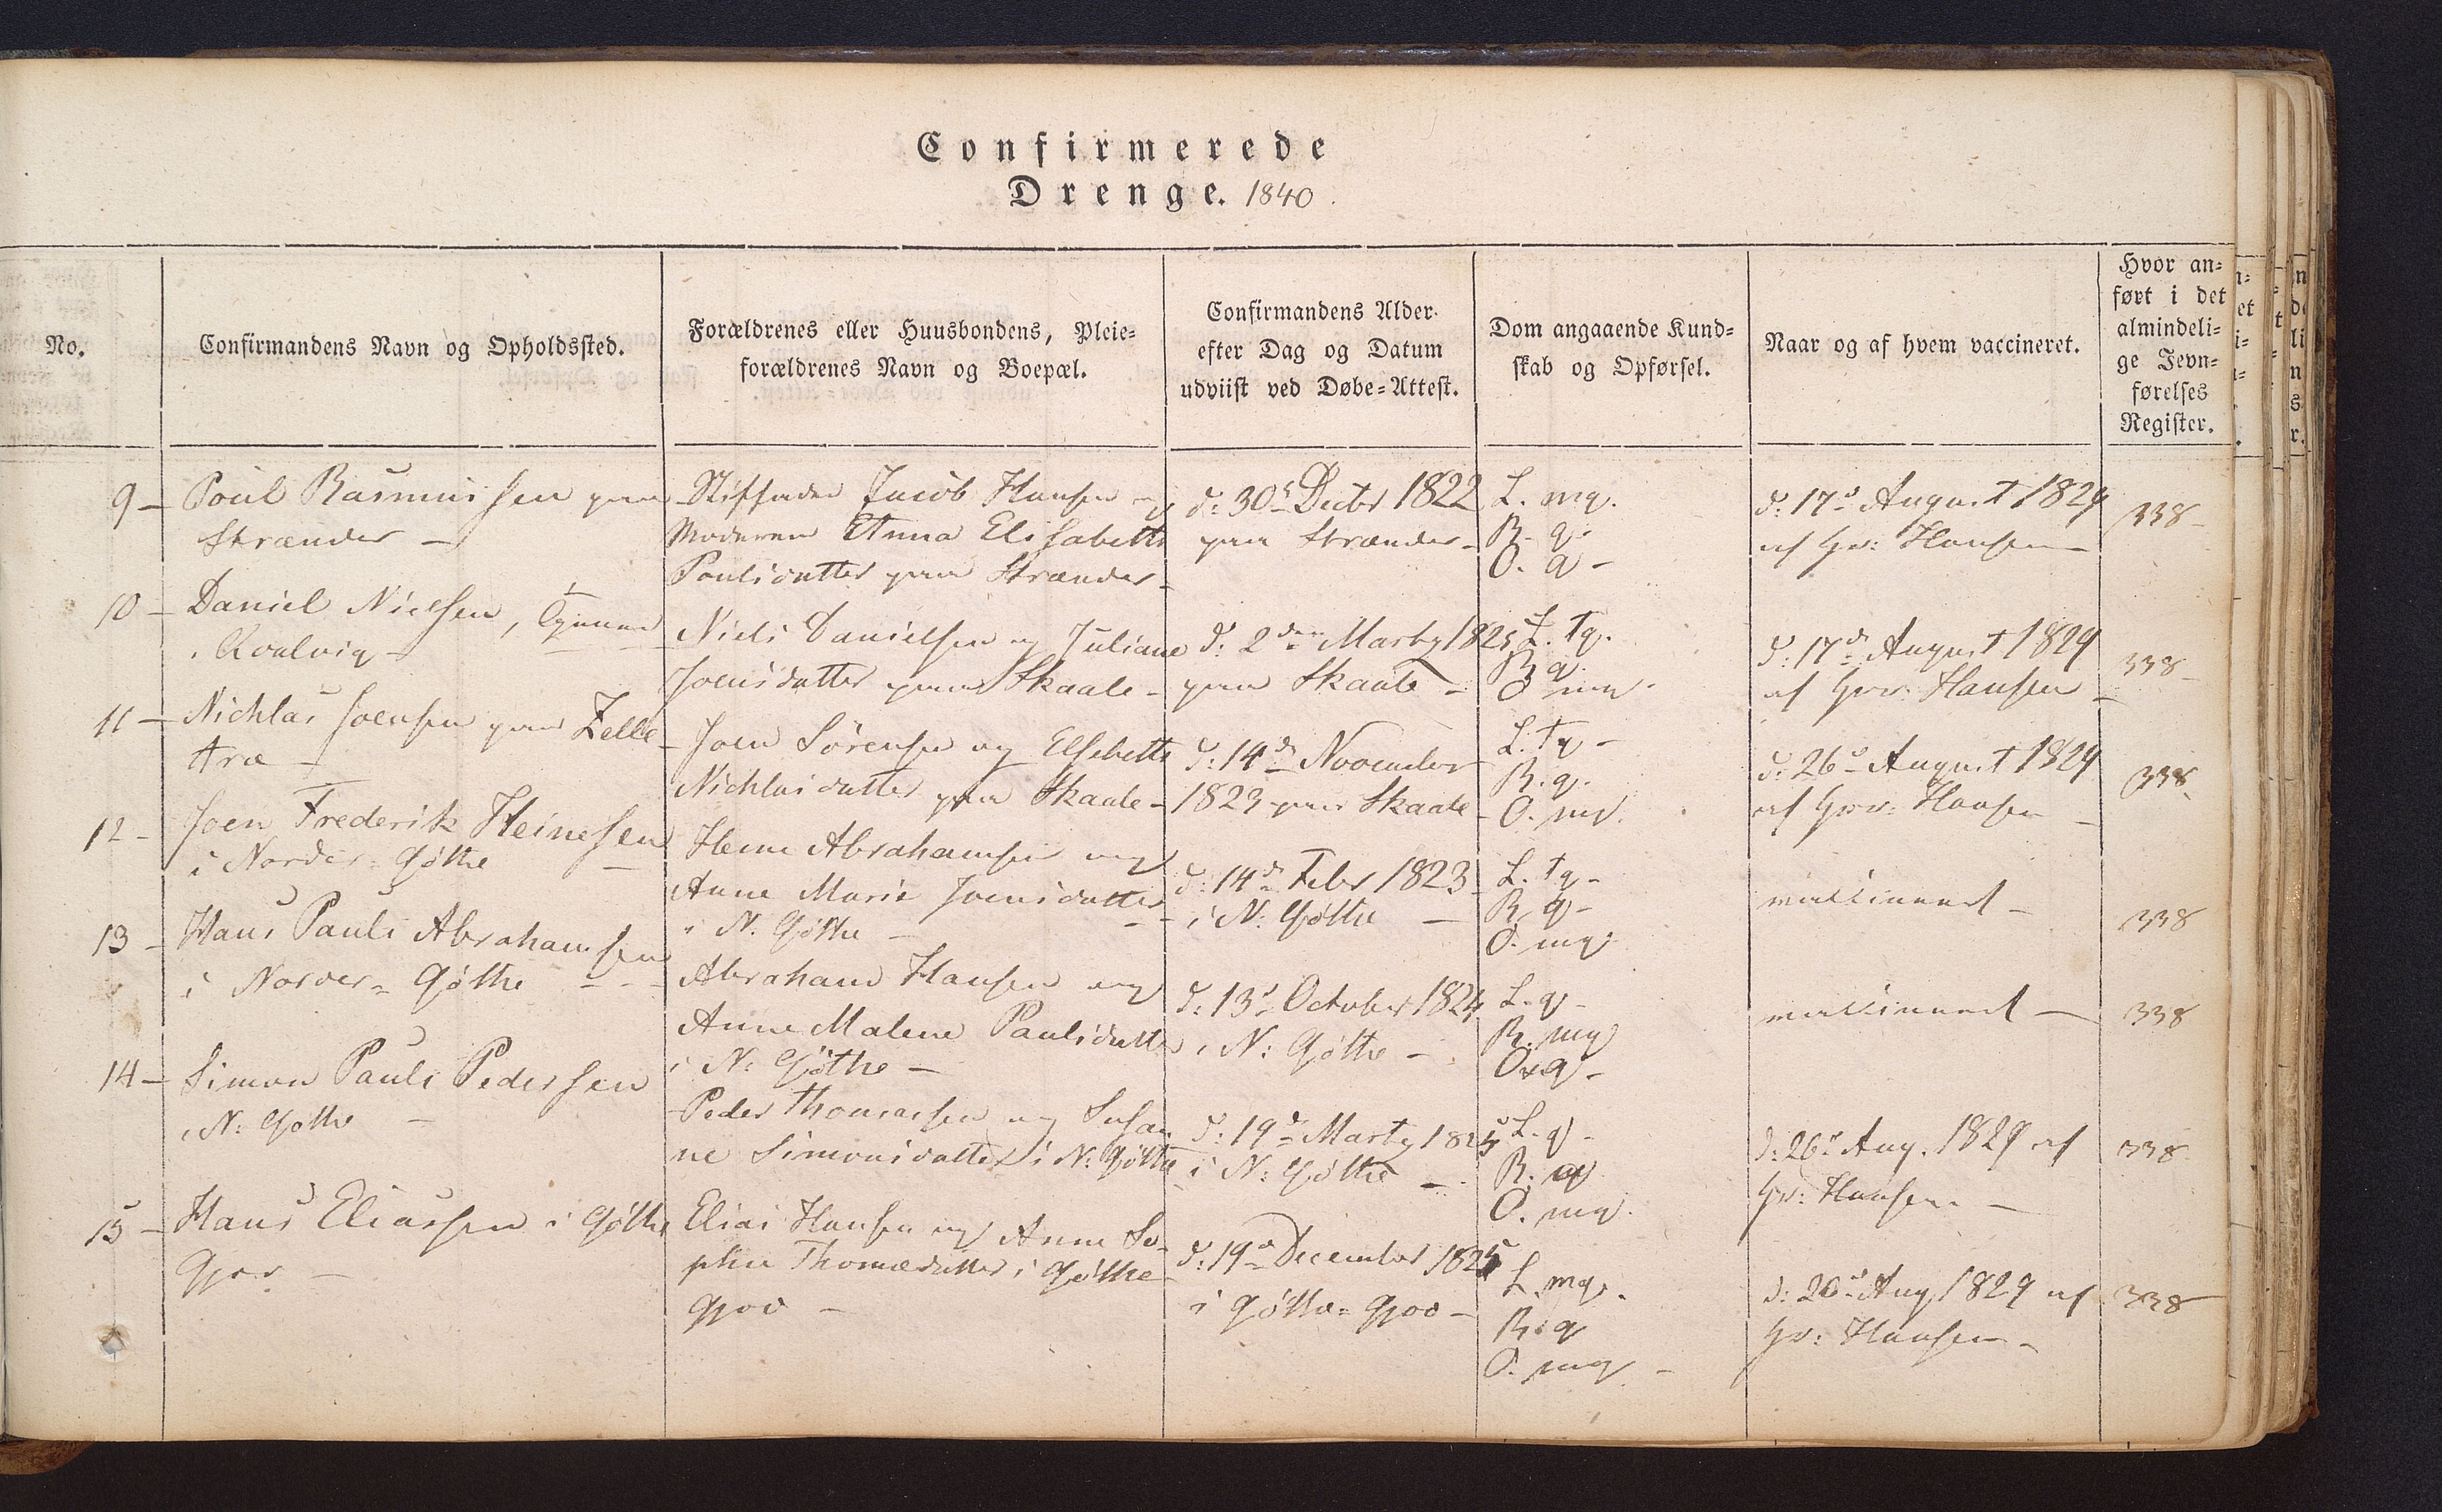 Confirmerede
Drenge. 1840.
No.
Confirmandens Navn og Opholdssted.
Forældrenes eller Huusbondens, Pleie=
forældrenes Navn og Boepæl.
Confirmandens Alder
efter Dag og Datum
udviist ved Døbe=Attest.
Dom angaaende Kund=
skab og Opførsel.
Naar og af hvem vaccineret.
Hvor an=
ført i det
almindeli=
ge Jevn=
førelses
Register.
9 – Poul Rasmussen paa
Strænder –
Stiffader Jacob Hansen og
Moderen Anna Elisabeth
Poulsdatter paa Strænder –
d: 30te Decbr 1822
paa Strænder –
L. mg.
R. g.
O. g –
d: 17de August 1829
af Hr: Hansen –
338 –
10 – Daniel Nielsen, Tjener
i Qvalvig –
Niels Danielsen og Juliane
Joensdatter paa Skaale –
d: 2den Marty 1825
paa Skaale –
L. tg.
R. g.
O mg.
d: 17de August 1829
af Hrr: Hansen –
338 –
11 – Nichlas Joensen paa Zelle
træ –
Joen Sørensen og Elsebeth
Nichlasdatter paa Skaale –
d: 14de November
1823 paa Skaale –
L. tg –
R. g.
O. mg.
d: 26de August 1829
af Hrr: Hansen –
338
12 – Joen Frederik Heinesen
i Norder=Gøthe –
Heine Abrahamsen og
Anne Marie Joensdatter
i N. Gøthe –
d: 14de Febr 1823
i N: Gøthe –
L. tg –
R. g –
O. mg.
vaccineret –
338
13 – Hans Pauli Abrahamsen
i Norder=Gøthe –
Abraham Hansen og
Anne Malene Paulsdatter
i N: Gøthe –
d: 13de October 1824
i N: Gøthe –
L. g –
R. mg
O. g –
vaccineret –
338
14 – Simon Pauli Pedersen
i N: Gøthe –
Peder Thomassen og Susan
ne Simonsdatter i N: Gøthe
d: 19de Marty 1825
i N: Gøthe –
L. g –
R. g
O. mg.
d: 26de Aug. 1829 af
Hr: Hansen –
338
15 – Hans Eliassen i Gøthe
Gjov –
Elias Hansen og Anne So=
phie Thomasdatter i Gøthe
Gjov –
d: 19de December 1825
i Gøthe=Gjov –
L. mg.
R. g
O. mg –
d: 26de Aug 1829 af
Hr: Hansen –
338